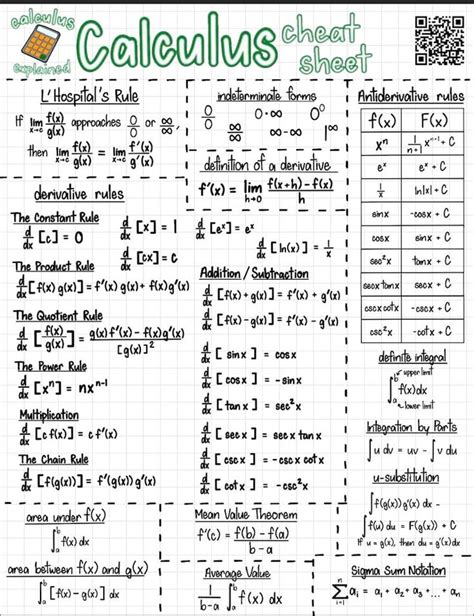 calculus
explained
Calculus
cheat
sheet
L'Hospital's Rule
If lim x→c f(x)/g(x) approaches 0/0 or ∞/∞,
then lim x→c f(x)/g(x) = lim x→c f'(x)/g'(x)
indeterminate forms
0/0 0·∞ 0⁰
∞/∞ ∞-∞ 1^∞
definition of a derivative
f'(x) = lim h→0 f(x+h) - f(x)/h
Antiderivative rules
f(x) F(x)
xⁿ 1/n+1 xⁿ⁺¹ + C
eˣ eˣ + C
1/x ln|x| + C
sinx -cosx + C
cosx sinx + C
sec²x tanx + C
secx tanx secx + C
cscx cotx -cscx + C
csc²x -cotx + C
derivative rules
The Constant Rule
d/dx [c] = 0
d/dx [x] = 1
d/dx [cx] = C
d/dx [eˣ] = eˣ
d/dx [ln(x)] = 1/x
The Product Rule
d/dx [f(x) g(x)] = f'(x) g(x) + f(x)g'(x)
The Quotient Rule
d/dx [f(x)/g(x)] = g(x)f'(x) - f(x)g'(x)/[g(x)]²
The Power Rule
d/dx [xⁿ] = nxⁿ⁻¹
Multiplication
d/dx [c f(x)] = c f'(x)
The Chain Rule
d/dx [f(g(x))] = f'(g(x)) g'(x)
Addition / Subtraction
d/dx [f(x) + g(x)] = f'(x) + g'(x)
d/dx [f(x) - g(x)] = f'(x) - g'(x)
d/dx [sinx] = cosx
d/dx [cosx] = -sinx
d/dx [tanx] = sec²x
d/dx [secx] = secx tanx
d/dx [cscx] = -cscx cotx
d/dx [cotx] = -csc²x
definite integral
upper limit
∫ₐᵇ f(x)dx
lower limit
Integration by Parts
∫u dv = uv - ∫v du
u-substitution
∫f(g(x))g'(x) dx =
∫f(u) du = F(g(x)) + C
If u = g(x), then du = g'(x)dx
area under f(x)
∫ₐᵇ f(x) dx
area between f(x) and g(x)
∫ₐᵇ [f(x) - g(x)] dx
Mean Value Theorem
f'(c) = f(b) - f(a)/b-a
Average Value
1/b-a ∫ₐᵇ f(x) dx
Sigma Sum Notation
n Σ i=1 aᵢ = a₁ + a₂ + a₃ + ... + aₙ